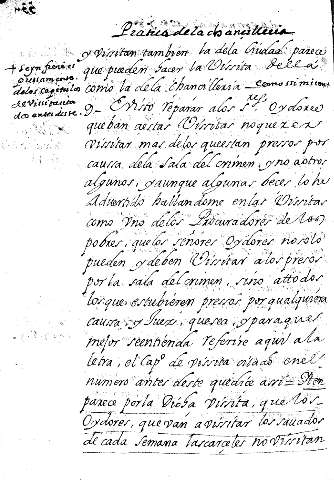 Practica de la chancilleria
y Vissitan tambien la dela Ciudad parece
que pueden hacer la Vissita
como la de la chancilleria
9- E visto reparar a los S.res Oydores
que ban a estas Vissitas no querer
vissitar mas de los que estan presos por
caussa, de la Sala del crimen, y no a otros
algunos, y aunque algunas beces lo he
advertido hallandome en las Vissitas
como Vno de los Procuradores de los
pobres, que los señores Oydores no solo
pueden y deben Vissitar a los presos
por la sala del crimen, sino a ttodos
los que estubieren presos por qualquiera
caussa, y Juez, que sea, y para que
mejor se entienda referire aqui a la
letra, el Cap.o de vissita citado en el
numero antes deste que dice assi =
parece por la Dicha Vissita, que los
Oydores, que van a vissitar los savados
de cada semana las carceles no Vissitan